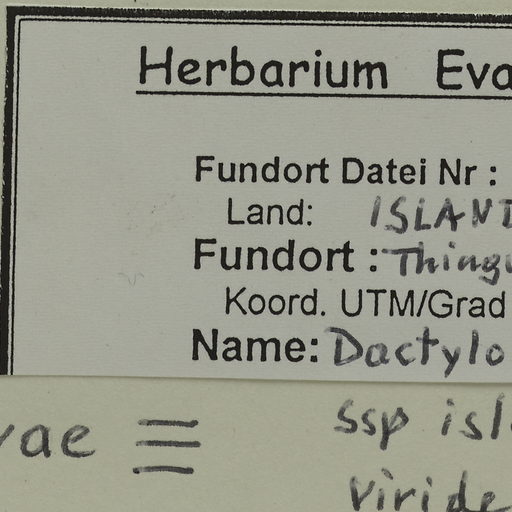 Herbarium Eva
Fundort Datei Nr :
Land: ISLAND
Fundort : Thingv
Koord. UTM/Grad
Name: Dactylo
vae ≡ ssp isl
viride